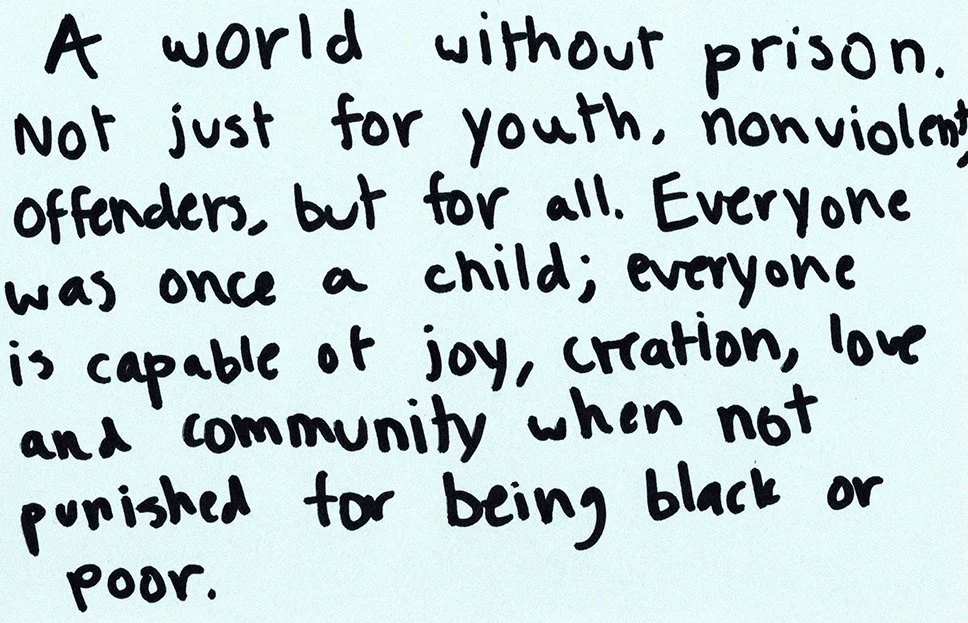 A world without prison.
Not just for youth, nonviolent,
offenders, but for all. Everyone
was once a child; everyone
is capable of joy, creation, love
and community when not
punished for being black or
poor.